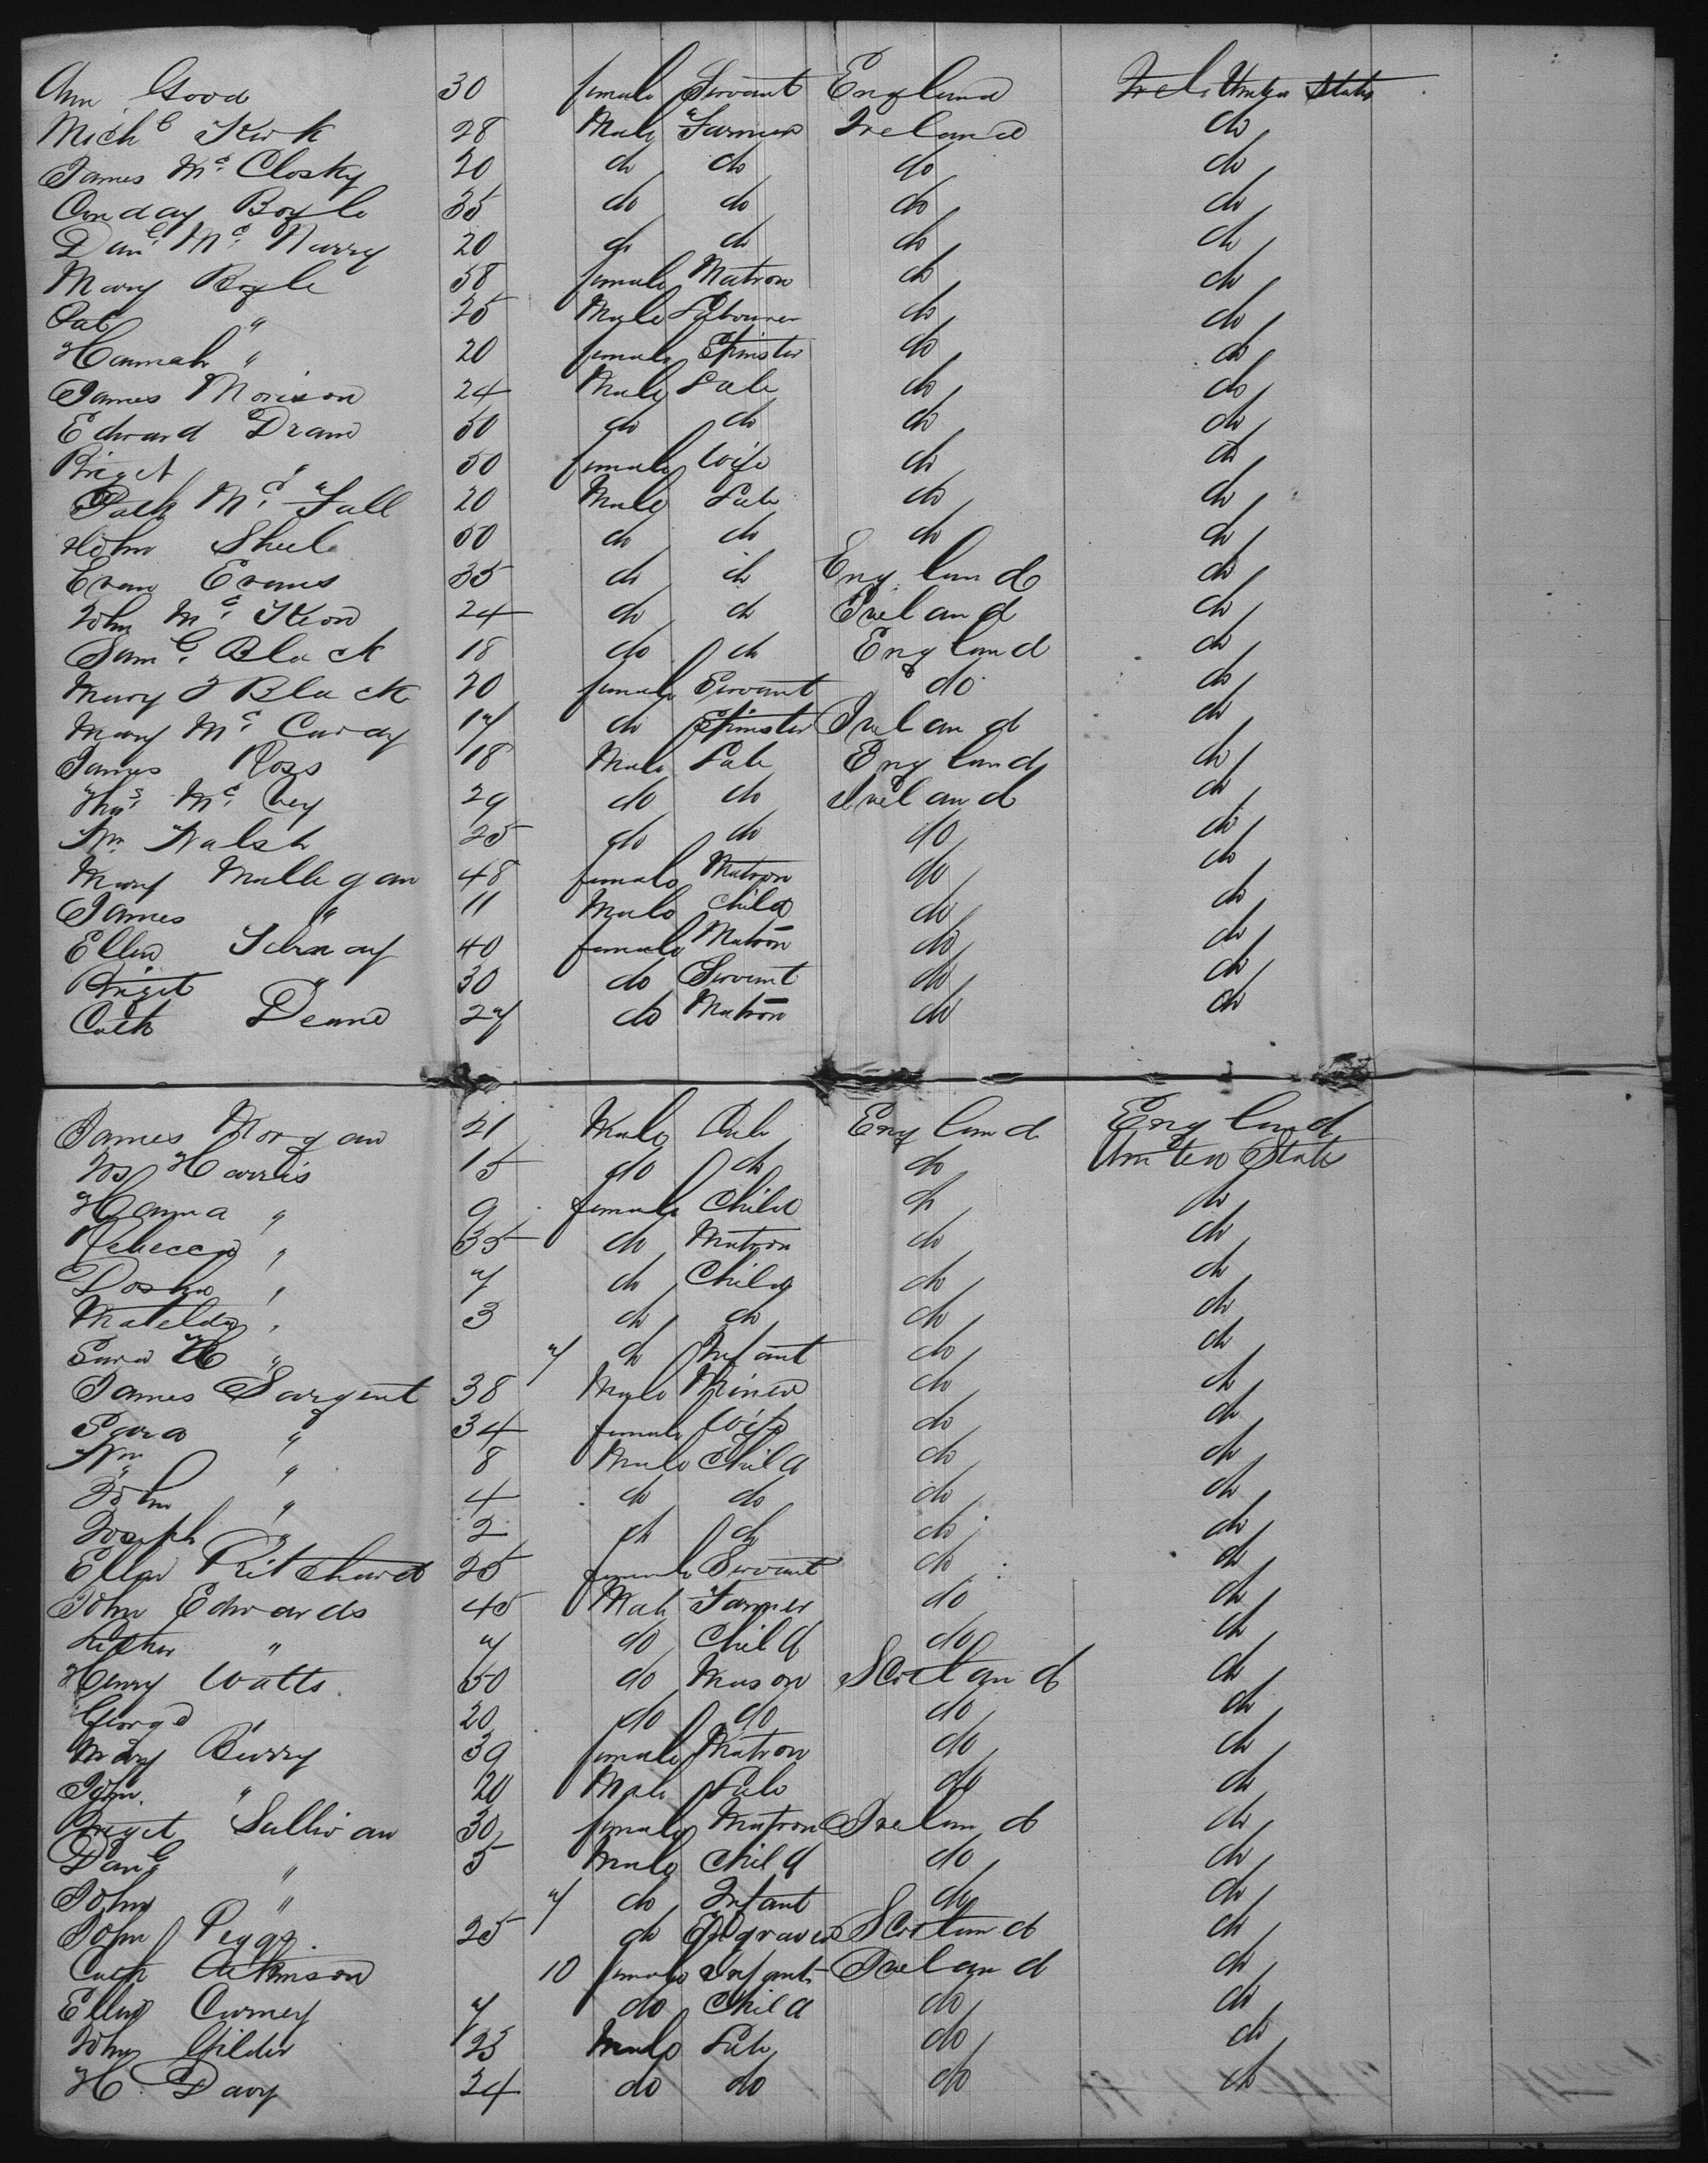 Ann Good 30 female Servant England United States
Mich.l Kirk 28 Male Farmer Ireland do
James Mc Closky 20 do do do do
Conday Boyle 35 do do do do
Danl Mc Narry 20 do do do do
Mary Boyle 58 female Matron do do
Pat " 25 Male Labourer do do
Hannah " 20 female Spinster do do
James Morison 24 Male Lab do do
Edward Drane 50 do do do do
Briget " 50 female Wife do do
Patk Mc Fall 20 Male Lab do do
John Sheel 50 do do do do
Evan Evans 35 do do England do
John Mc Keon 24 do do Ireland do
Saml Black 18 do do England do
Mary J Black 20 female Servant do do
Mary Mc Curdy 17 do Spinster Ireland do
James Ross 18 Male Lab England do
Thos Mc Vey 29 do do Ireland do
Wm Walsh 25 do do do do
Mary Mulligan 48 female Matron do do
James " 11 Male Child do do
Ellen 40 female Matron do do
Briget " 30 do Servant do do
Cath Deane 27 do Matron do do
James Morgan 21 Male Lab England England
Jos Harris 15 do do do United States
Hanna " 9 female Child do do
Rebecca " 35 do Matron do do
" 7 do Child do do
Matelda " 3 do do do do
Sara H " 7 do Infant do do
James Sargent 38 Male Miner do do
Sara " 34 female Wife do do
Wm " 8 Male Child do do
John " 4 do do do do
Joseph " 2 do do do do
Ellen Pritchard 25 female Servant do do
John Edwards 45 Male Farmer do do
" 7 do Child do do
Henry Watts 50 do Mason Scotland do
George " 20 do do do do
Mary Burry 39 female Matron do do
John " 20 Male Lab do do
Briget Sullivan 30 female Matron Ireland do
Danl " 5 Male Child do do
John " 7 do Infant do do
John Peggs 25 do Engraver Scotland do
Cath Atkinson 10 female Infant Ireland do
Ellen Curney 7 do Child do do
John Gilder 23 Male Lab do do
H. Davy 24 do do do do